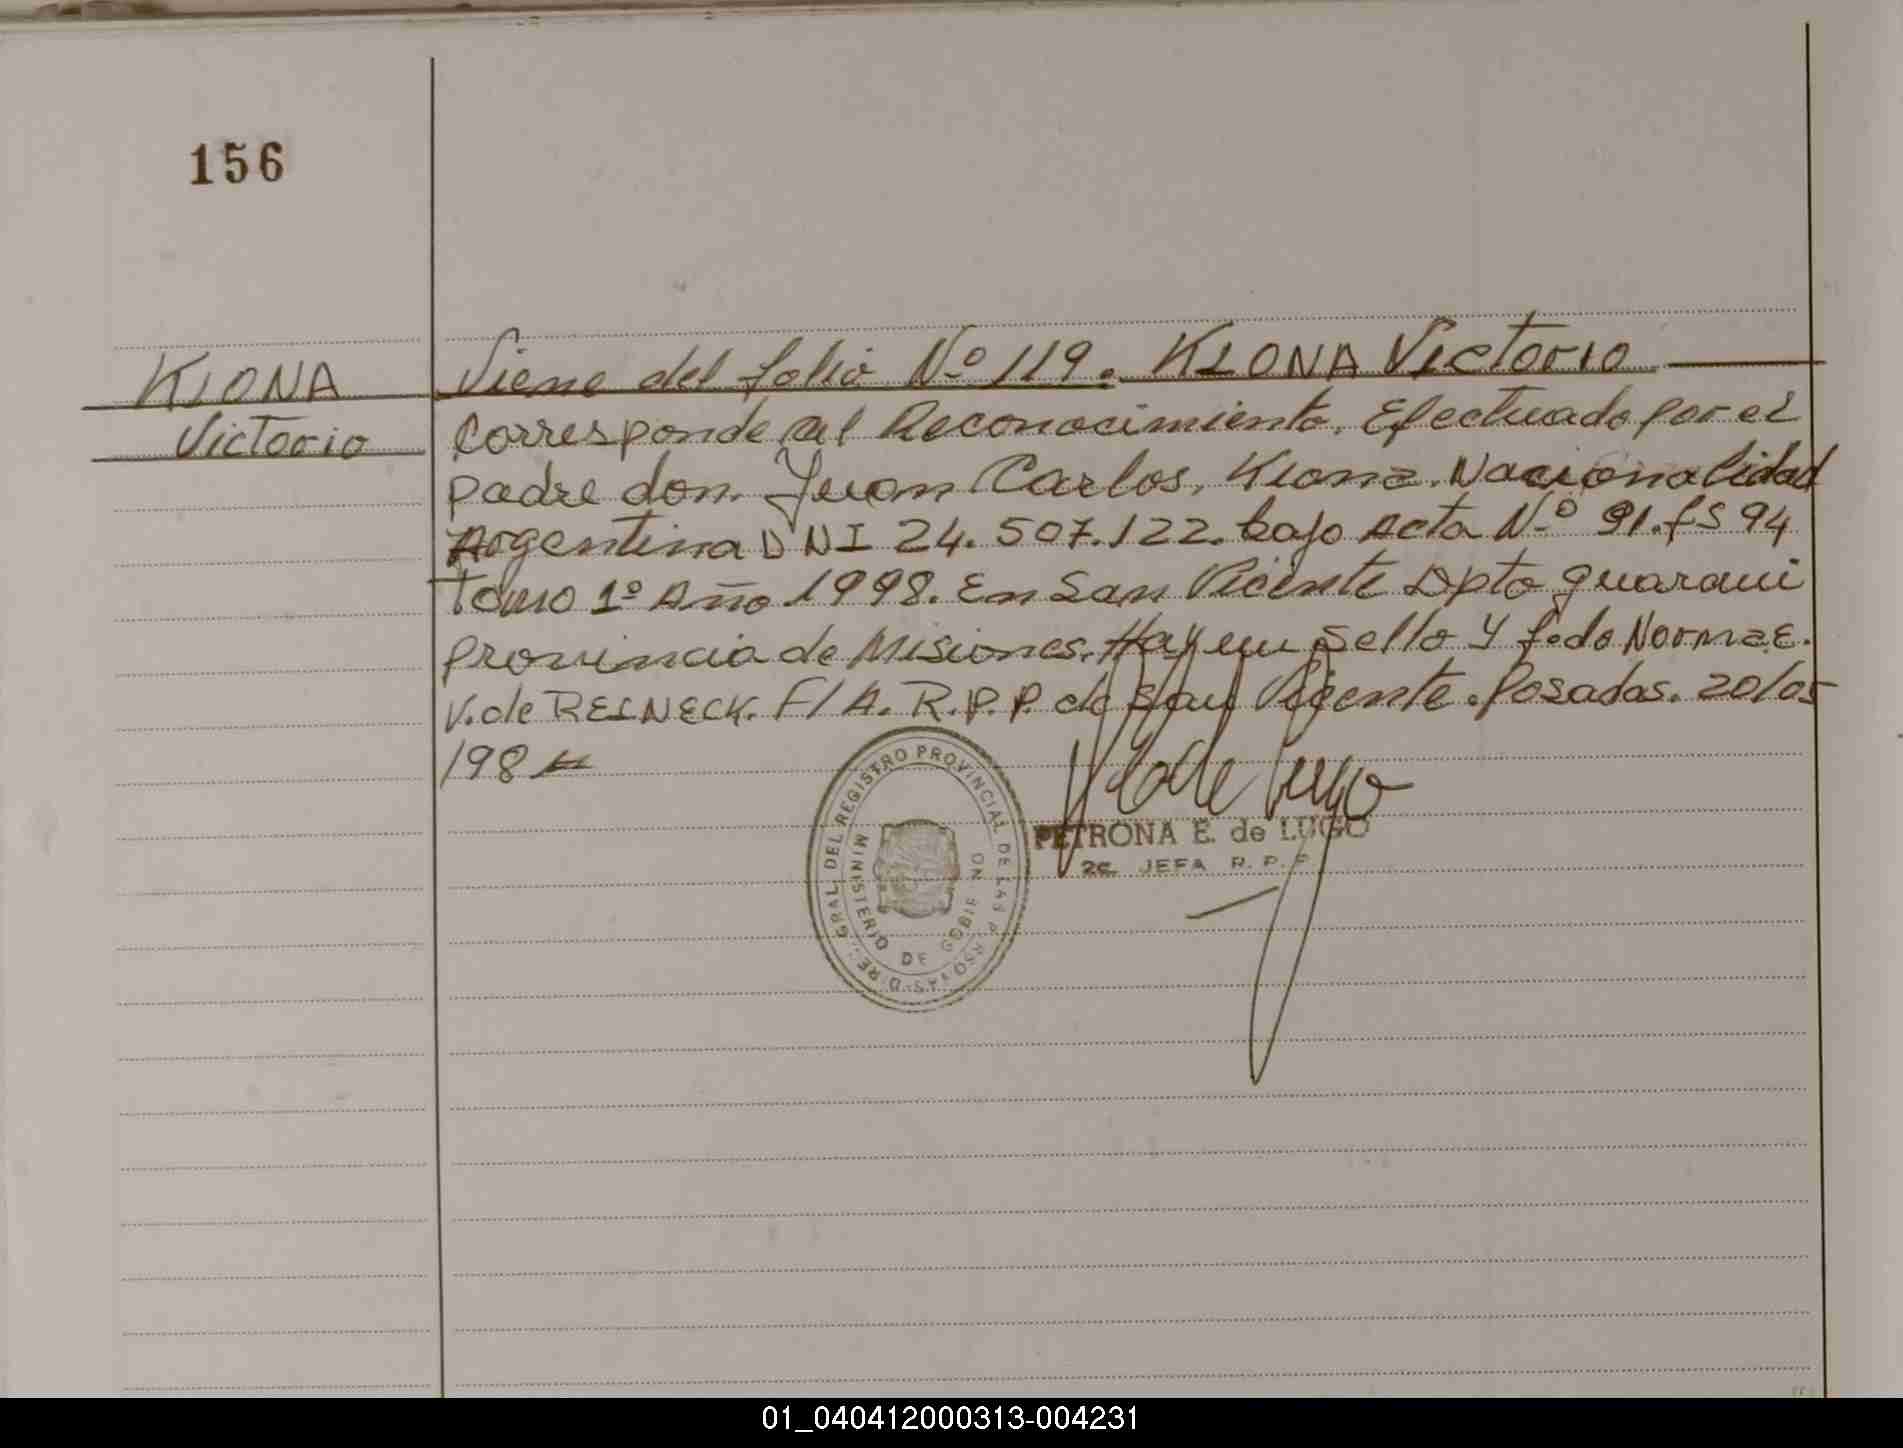 156
KIONA
Victorio
Viene del folio Nº 119. KIONA Victorio
Corresponde al Reconocimiento. Efectuado por el
padre don. Juan Carlos. Kiona. Nacionalidad
Argentina DNI 24.507.122. bajo Acta Nº 91. fs 94
Tomo 1º Año 1998. En San Vicente Dpto guarani
provincia de Misiones. Hay un Sello y f.do Norma E.
V. de REINECK. F/A. R.P.P. de San Vicente. Posadas. 20/05
/98
DIREC. GRAL. DEL REGISTRO PROVINCIAL DE LAS PERSONAS
MINISTERIO DE GOBIERNO
PETRONA E. de LUGO
2c. JEFA R. P. P.
01_040412000313-004231